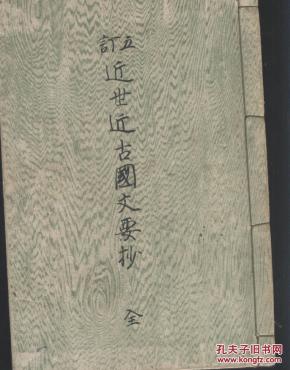 五訂
近世近古國文要抄
全
孔夫子旧书网
www.kongfz.com